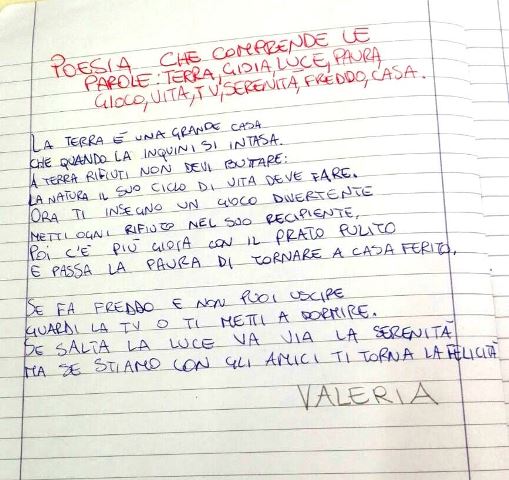 POESIA CHE COMPRENDE LE
PAROLE: TERRA, GIOIA, LUCE, PAURA,
GIOCO, VITA, TV, SERENITÀ, FREDDO, CASA.
LA TERRA È UNA GRANDE CASA
CHE QUANDO LA INQUINI SI INTASA.
A TERRA RIFIUTI NON DEVI BUTTARE:
LA NATURA IL SUO CICLO DI VITA DEVE FARE.
ORA TI INSEGNO UN GIOCO DIVERTENTE
METTI OGNI RIFIUTO NEL SUO RECIPIENTE,
POI C'È PIÙ GIOIA CON IL PRATO PULITO
E PASSA LA PAURA DI TORNARE A CASA FERITO.
SE FA FREDDO E NON PUOI USCIRE
GUARDI LA TV O TI METTI A DORMIRE.
SE SALTA LA LUCE VA VIA LA SERENITÀ
MA SE STIAMO CON GLI AMICI TI TORNA LA FELICITÀ
VALERIA